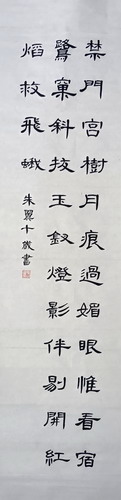 禁門宮樹月痕過媚眼惟看宿
鷺窠斜拔玉釵燈影伴剔開紅
焰救飛蛾
朱翼十歲書